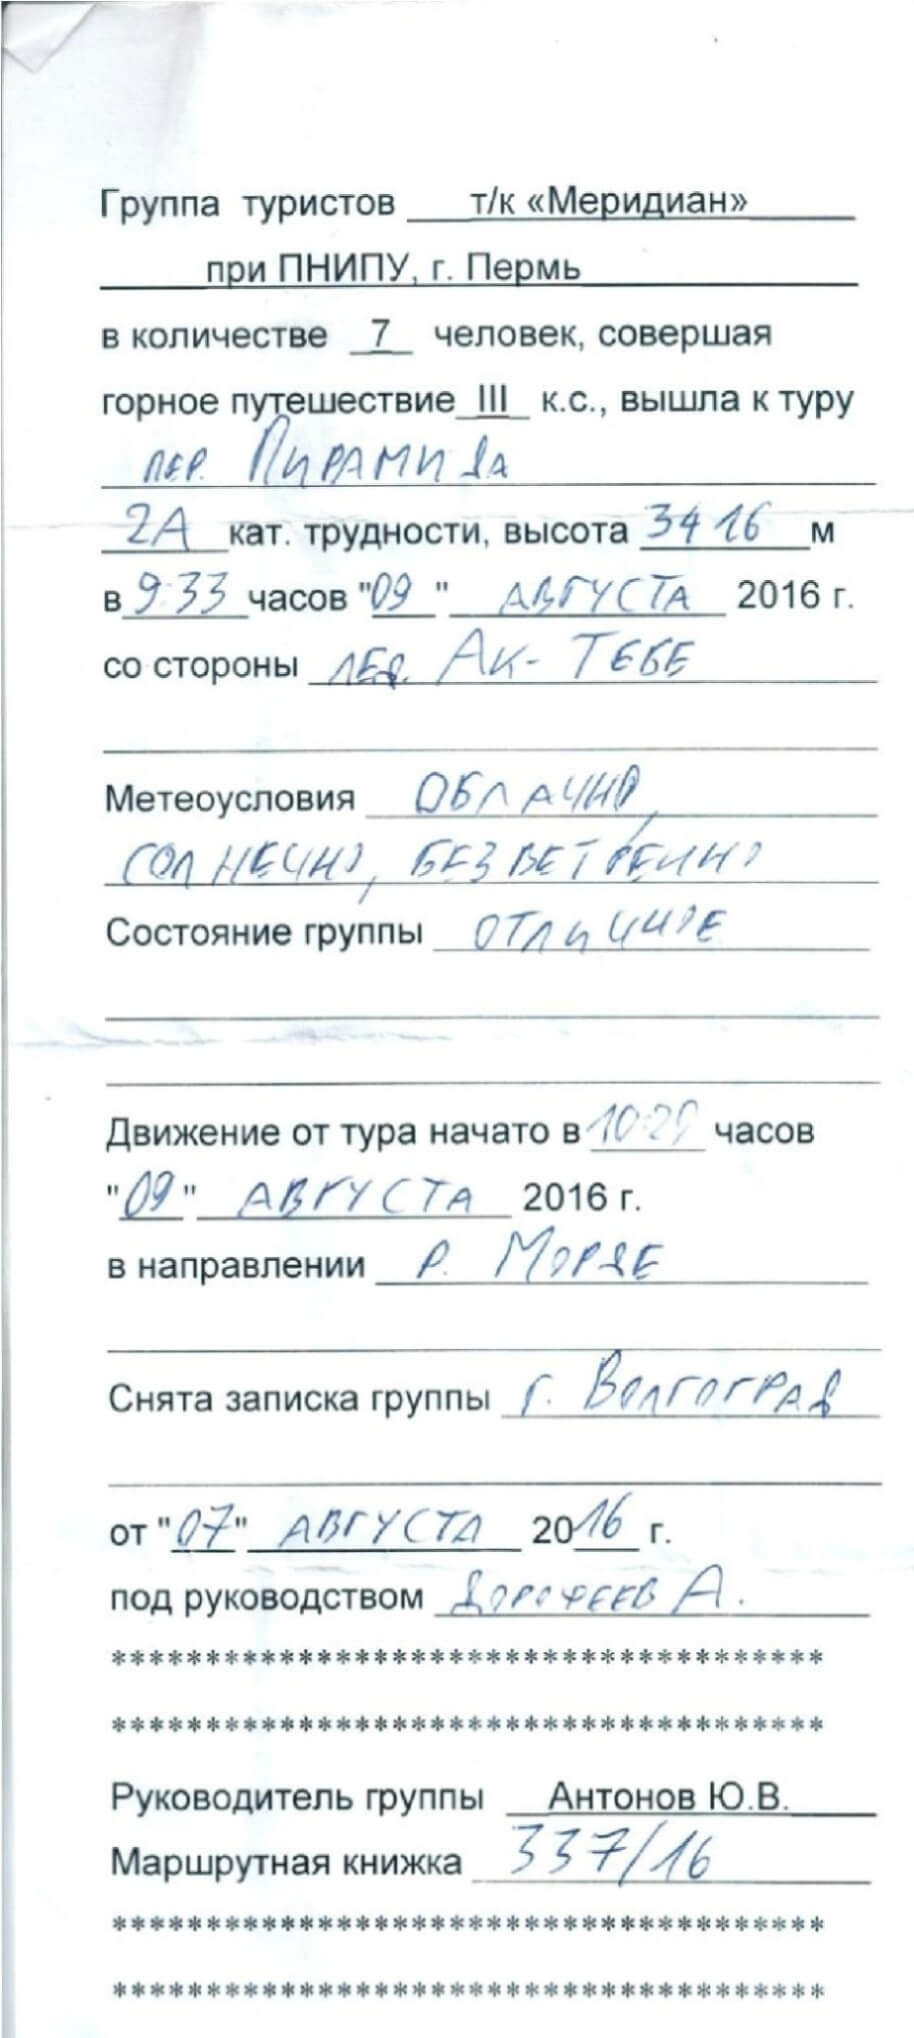 Группа туристов т/к «Меридиан»
при ПНИПУ, г. Пермь
в количестве 7 человек, совершая
горное путешествие III к.с., вышла к туру
пер. Пирамида
2А кат. трудности, высота 3416 м
в 9:33 часов "09" АВГУСТА 2016 г.
со стороны лед. Ак-Тебе
Метеоусловия ОБЛАЧНО,
СОЛНЕЧНО, БЕЗВЕТРЕННО
Состояние группы ОТЛИЧНОЕ
Движение от тура начато в 10:29 часов
"09" АВГУСТА 2016 г.
в направлении р. Мордe
Снята записка группы г. Волгоград
от "07" АВГУСТА 2016 г.
под руководством Дорофеев А.
***************************************
***************************************
Руководитель группы Антонов Ю.В.
Маршрутная книжка 337/16
***************************************
***************************************